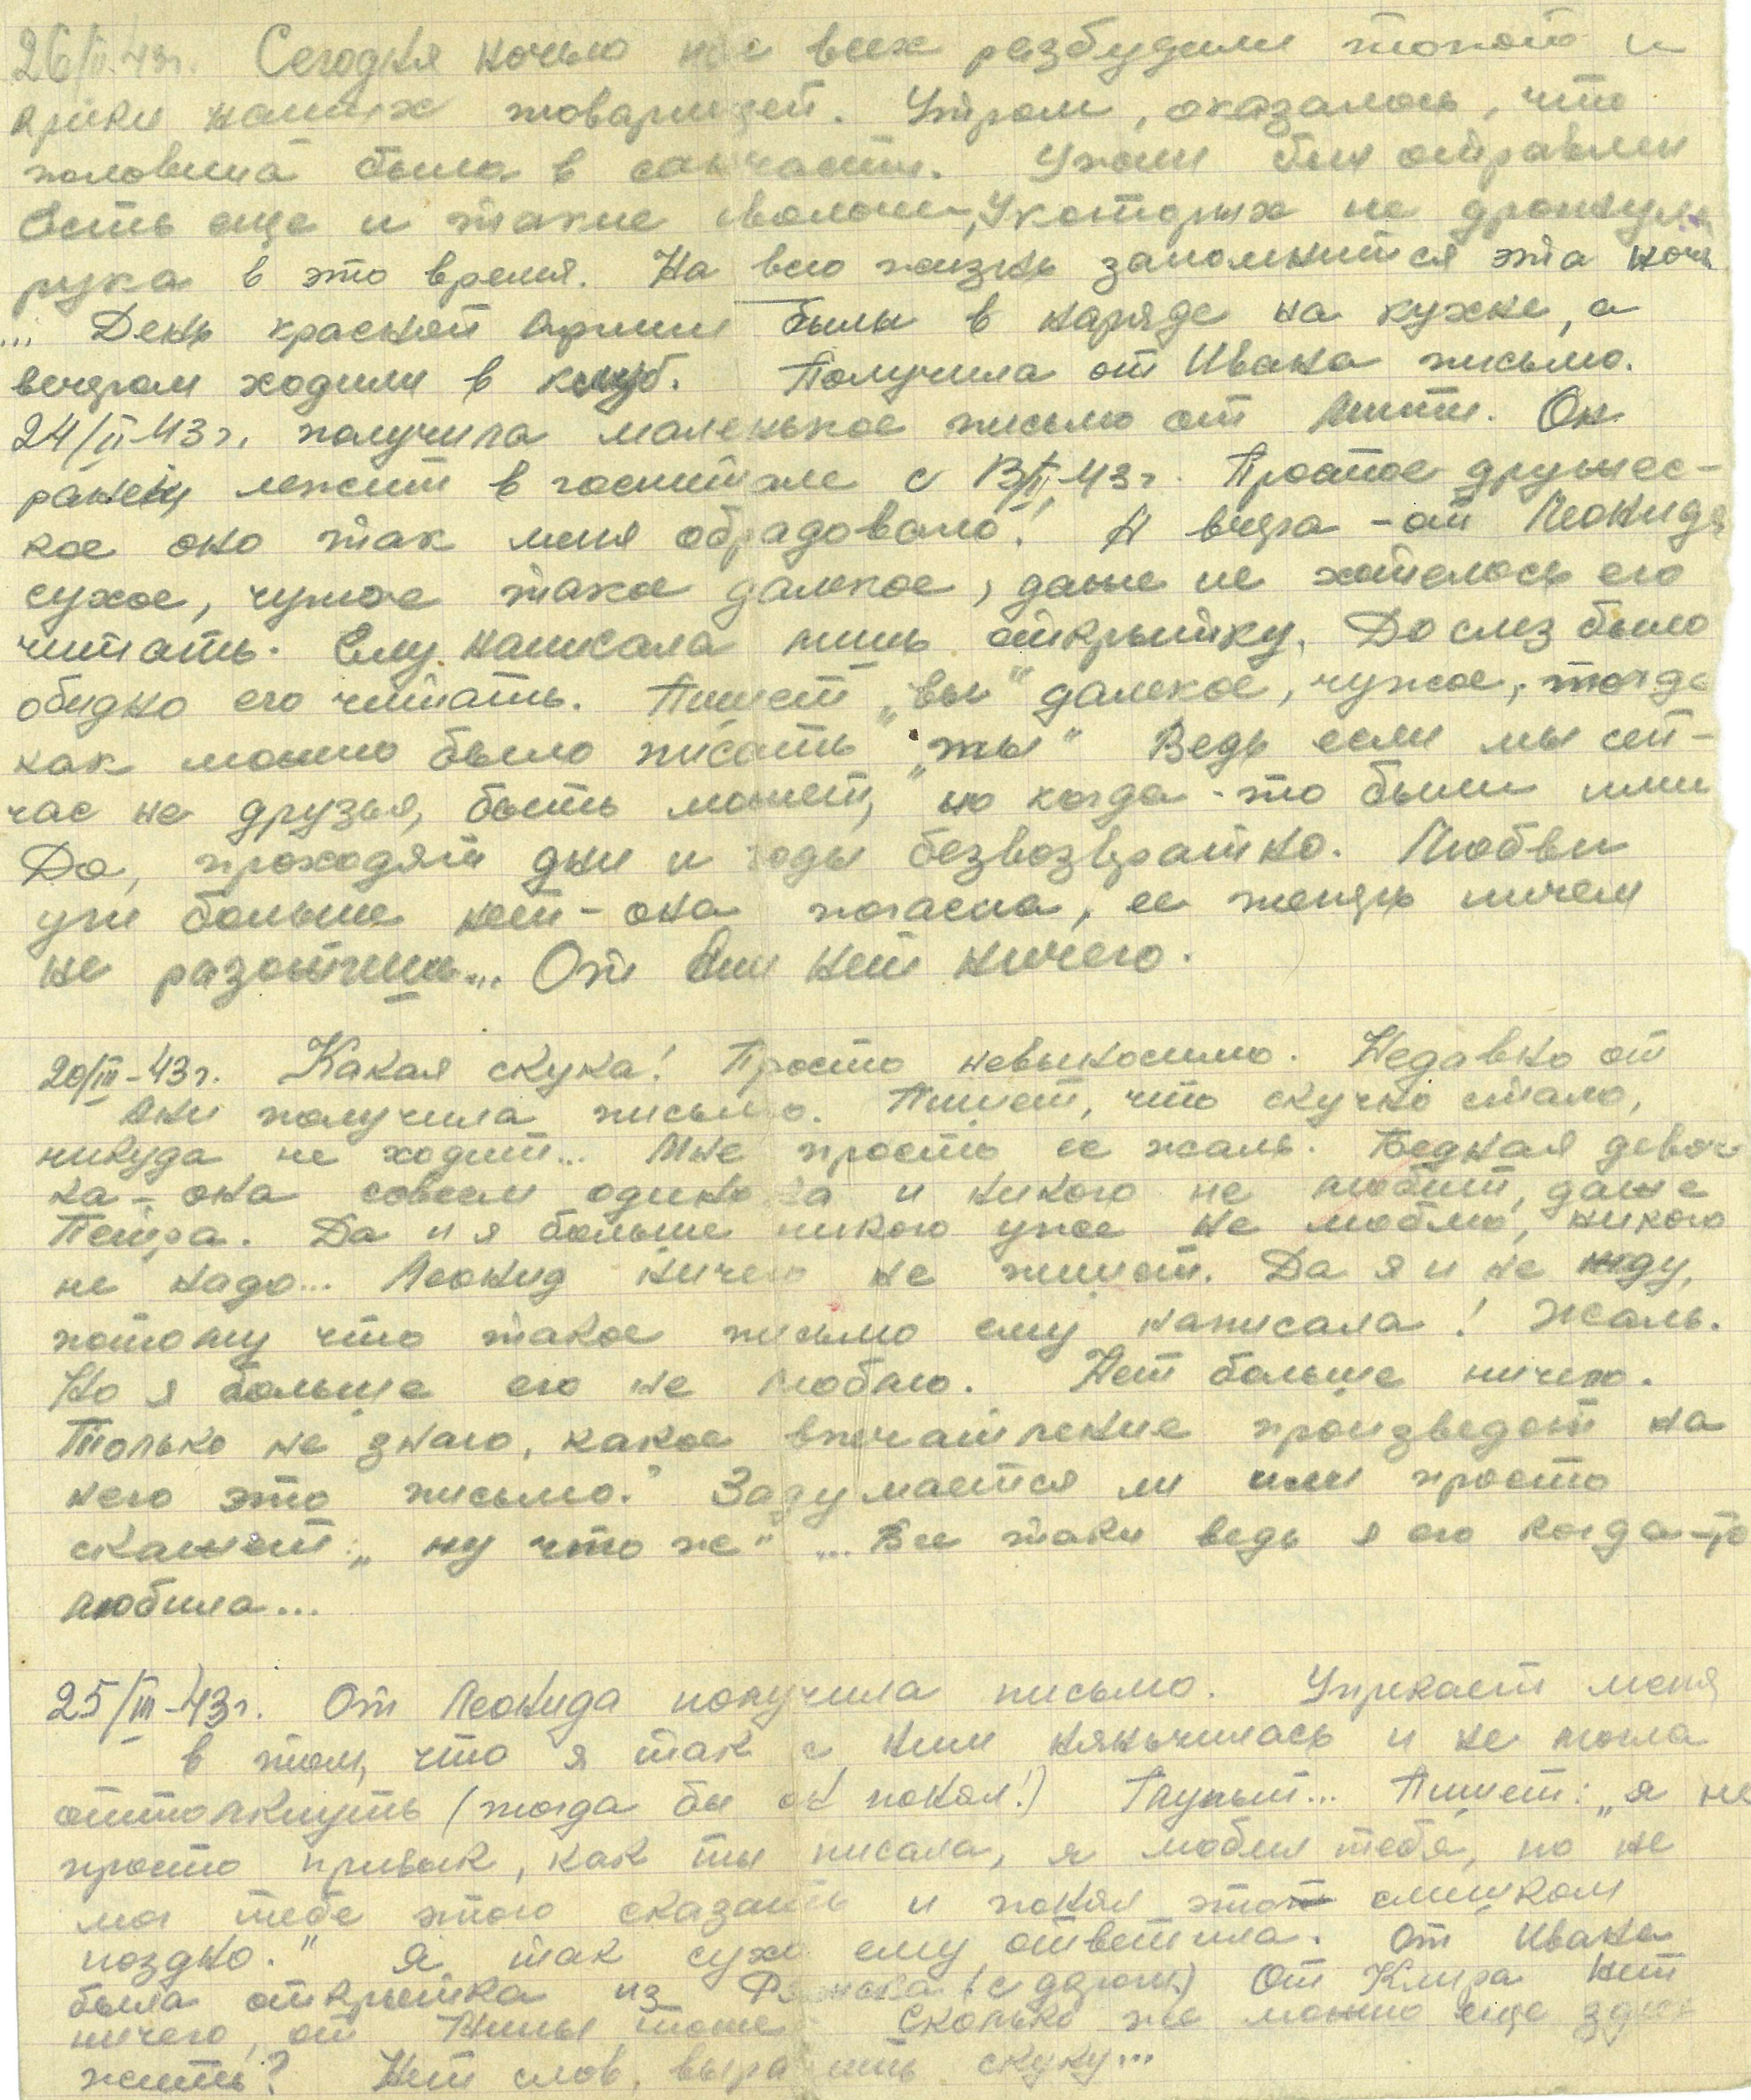 26/II-43г. Сегодня ночью нас всех разбудили топот и
крики наших товарищей. Утром, оказалось, что
половина была в санчасти. Ужин был отравлен
Есть еще и такие сволочи, у которых не дрогнула
рука в это время. На всю жизнь запомнится эта ночь
... День красной Армии были в наряде на кухне, а
вечером ходили в клуб. Получила от Ивана письмо.
24/II-43г. получила маленькое письмо от Мити. Он
ранен, лежит в госпитале с 13/II-43г. Простое дружес-
кое оно так меня обрадовало! А вчера - от Леонида
сухое, чужое такое далекое, даже не хотелось его
читать. Ему написала лишь открытку. До слез было
обидно его читать. Пишет „вы" далекое, чужое, тогда
как можно было писать „ты" Ведь если мы сей-
час не друзья, быть может, но когда-то были ими
Да, проходят дни и годы безвозвратно. Любви
уж больше нет - она погасла, ее теперь ничем
не разожжешь... От Ани нет ничего.
20/III-43г. Какая скука! Просто невыносимо. Недавно от
Ани получила письмо. Пишет, что скучно стало,
никуда не ходит... Мне просто ее жаль. Бедная девоч
ка - она совсем одинока и никого не любит, даже
Петра. Да и я больше никого уже не люблю, никого
не надо... Леонид ничего не пишет. Да я и не жду,
потому что такое письмо ему написала! Жаль.
Но я больше его не люблю. Нет больше ничего.
Только не знаю, какое впечатление произведет на
него это письмо? Задумается ли или просто
скажет: „ну что же" ... Все таки ведь я его когда-то
любила...
25/III-43г. От Леонида получила письмо. Упрекает меня
в том, что я так с ним нянчилась и не могла
оттолкнуть (тогда бы он понял!) Глупый... Пишет: „я не
просто привык, как ты писала, я любил тебя, но не
мог тебе этого сказать и понял это слишком
поздно." Я так сухо ему ответила. От Ивана
была открытка из (с дороги) От Клира нет
ничего, от Нины тоже Сколько же можно еще здесь
жить? Нет слов, выразить скуку...